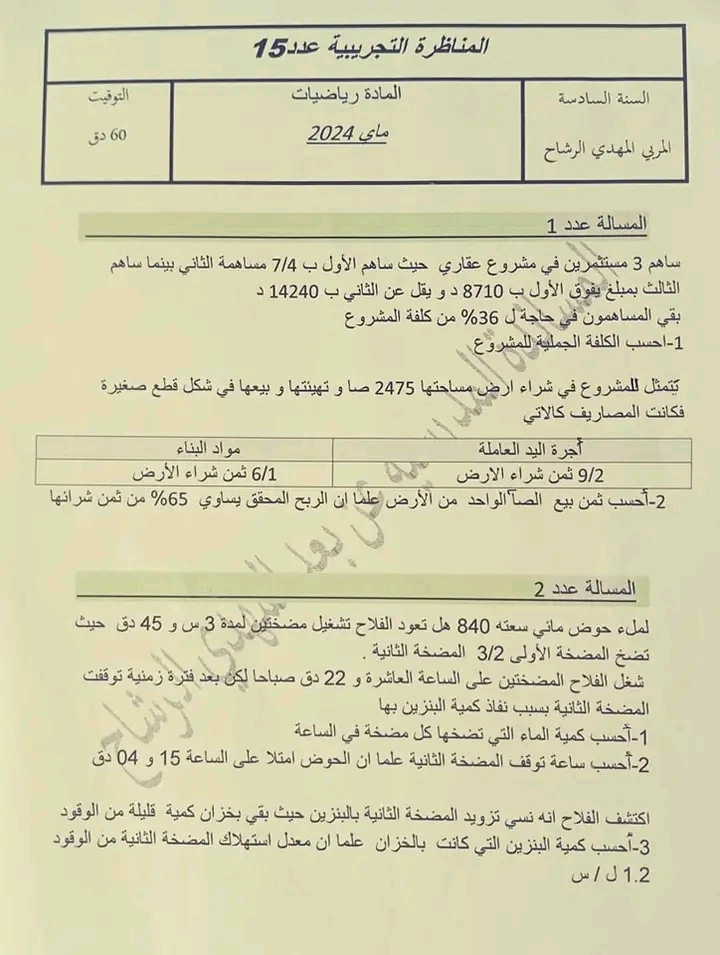 المناظرة التجريبية عدد15
السنة السادسة
المربي المهدي الرشاح
المادة رياضيات
ماي 2024
التوقيت
60 دق
المسالة عدد 1
ساهم 3 مستثمرين في مشروع عقاري حيث ساهم الأول ب 7/4 مساهمة الثاني بينما ساهم
الثالث بمبلغ يفوق الأول ب 8710 د و يقل عن الثاني ب 14240 د
بقي المساهمون في حاجة ل 36% من كلفة المشروع
1-احسب الكلفة الجملية للمشروع
يتمثل المشروع في شراء ارض مساحتها 2475 صا و تهيئتها و بيعها في شكل قطع صغيرة
فكانت المصاريف كالاتي
أجرة اليد العاملة
مواد البناء
9/2 ثمن شراء الارض
6/1 ثمن شراء الأرض
2-أحسب ثمن بيع الصآ الواحد من الأرض علما ان الربح المحقق يساوي 65% من ثمن شرائها
المسالة عدد 2
لملء حوض مائي سعته 840 هل تعود الفلاح تشغيل مضختين لمدة 3 س و 45 دق حيث
تضخ المضخة الأولى 3/2 المضخة الثانية .
شغل الفلاح المضختين على الساعة العاشرة و 22 دق صباحا لكن بعد فترة زمنية توقفت
المضخة الثانية بسبب نفاذ كمية البنزين بها
1-أحسب كمية الماء التي تضخها كل مضخة في الساعة
2-أحسب ساعة توقف المضخة الثانية علما ان الحوض امتلا على الساعة 15 و 04 دق
اكتشف الفلاح انه نسي تزويد المضخة الثانية بالبنزين حيث بقي بخزان كمية قليلة من الوقود
3-أحسب كمية البنزين التي كانت بالخزان علما ان معدل استهلاك المضخة الثانية من الوقود
1.2 ل / س
المساندة المدرسية عن بعد المهدي الرشاح